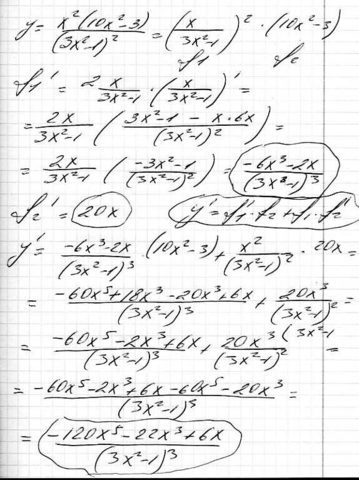 y = x²(10x²-3)/(3x²-1)² = (x/(3x²-1))² · (10x²-3)
f₁ f₂
f₁' = 2 x/(3x²-1) · (x/(3x²-1))' =
= 2x/(3x²-1) ((3x²-1 - x·6x)/(3x²-1)²) =
= 2x/(3x²-1) ((-3x²-1)/(3x²-1)²) = (-6x³-2x)/(3x²-1)³
f₂' = 20x y' = f₁'·f₂+f₁·f₂'
y' = (-6x³-2x)/(3x²-1)³ · (10x²-3) + x²/(3x²-1)² · 20x =
= (-60x⁵+18x³-20x³+6x)/(3x²-1)³ + 20x³/(3x²-1)² =
= (-60x⁵-2x³+6x)/(3x²-1)³ + 20x³(3x²-1/(3x²-1)² =
= (-60x⁵-2x³+6x-60x⁵-20x³)/(3x²-1)³ =
= (-120x⁵-22x³+6x)/(3x²-1)³